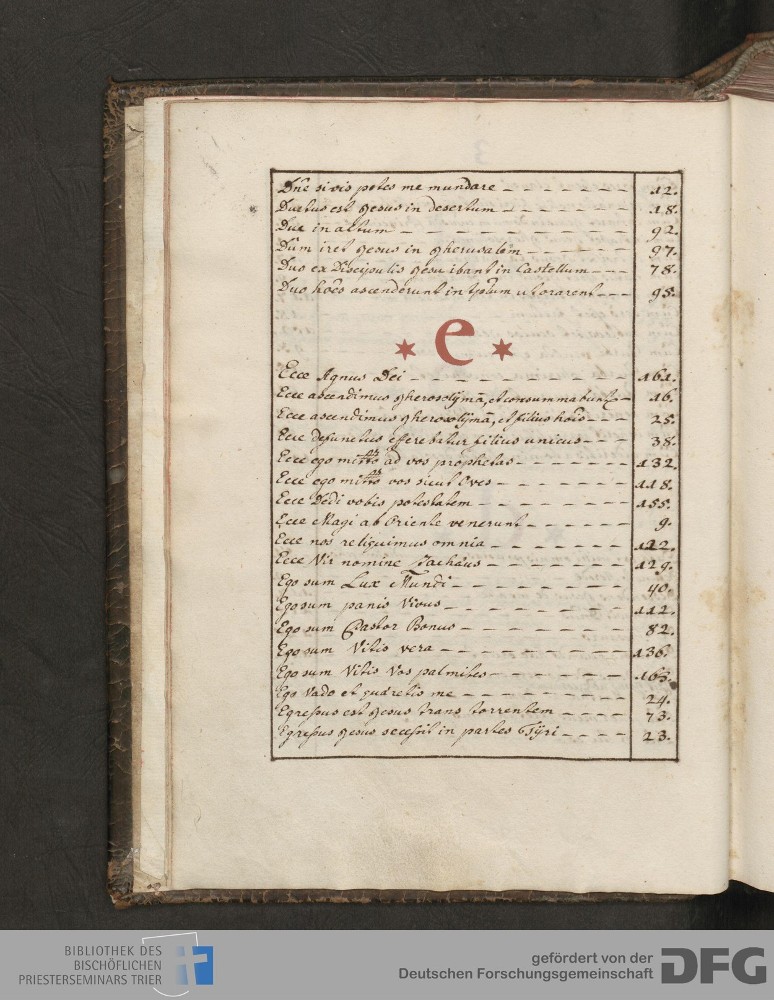 Dñe si vis potes me mundare 12.
Ductus est Jesus in desertum 18.
Duc in altum 92.
Dũm iret Jesus in Jherusalem 97.
Duo ex Discipulis Jesu ibant in Castellum 78.
Duo hoẽs ascenderunt in tplum ut orarent 95.
e
Ecce Agnus Dei 161.
Ecce ascendimus Jherosolÿmã, et consummabuntur 16.
Ecce ascendimus Jherosolÿmã, et filius hoĩs 25.
Ecce defunctus efferebatur filius unicus 38.
Ecce ego mitto ad vos prophetas 132.
Ecce ego mitto vos sicut Oves 118.
Ecce Dedi vobis potestatem 155.
Ecce Magi ab Oriente venerunt 9.
Ecce nos reliquimus omnia 122.
Ecce Vir nomine Zachæus 129.
Ego sum Lux Mundi 40.
Ego sum panis Vivus 112.
Ego sum Pastor Bonus 82.
Ego sum Vitis vera 136.
Ego sum Vitis Vos palmites 163.
Ego Vado et quæretis me 24.
Egressus est Jesus trans torrentem 73.
Egressus Jesus secessit in partes Tÿri 23.
BIBLIOTHEK DES
BISCHÖFLICHEN
PRIESTERSEMINARS TRIER
gefördert von der
Deutschen Forschungsgemeinschaft DFG